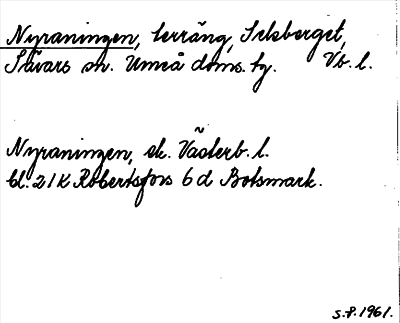 Nyraningen, terräng, Selsberget,
Sävars sn. Umeå doms. tg. Vb. l.
Nyraningen, ek. Västerb. l.
bl. 21K Robertsfors 6d Botsmark.
S.P. 1961.